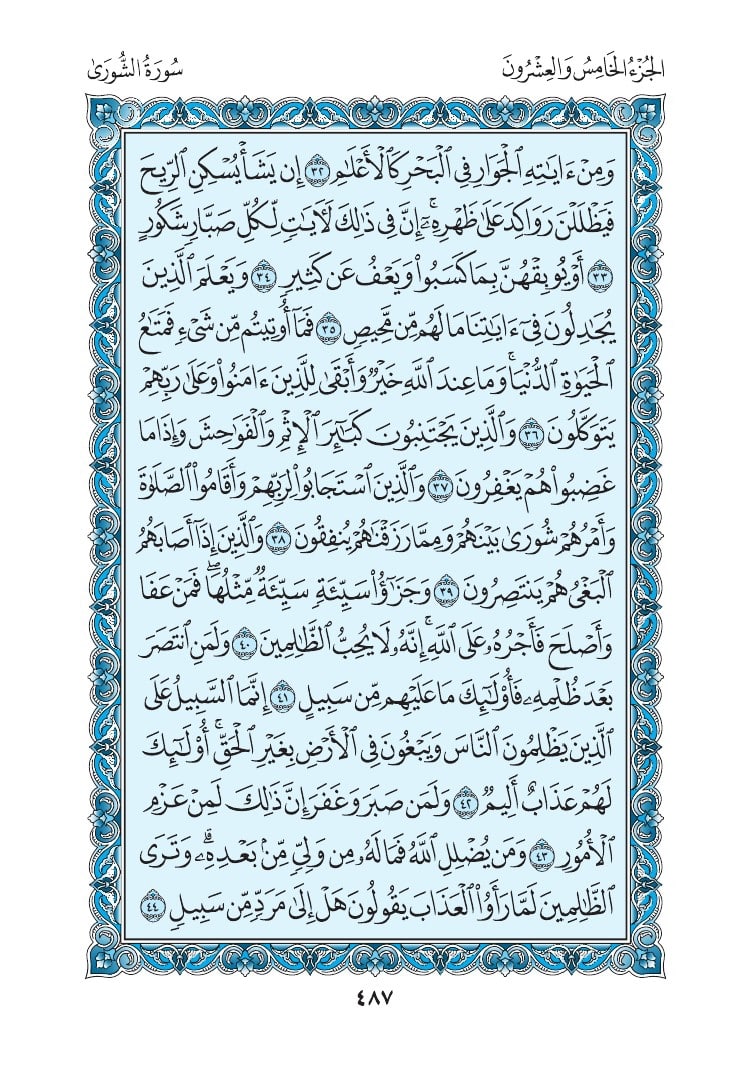 الجُزْءُ الخَامِسُ وَالعِشْرُونَ
سُورَةُ الشُّورَىٰ
وَمِنْ ءَايَٰتِهِ ٱلْجَوَارِ فِى ٱلْبَحْرِ كَٱلْأَعْلَٰمِ ٣٢ إِن يَشَأْ يُسْكِنِ ٱلرِّيحَ
فَيَظْلَلْنَ رَوَاكِدَ عَلَىٰ ظَهْرِهِۦٓ ۚ إِنَّ فِى ذَٰلِكَ لَءَايَٰتٍ لِّكُلِّ صَبَّارٍ شَكُورٍ
٣٣ أَوْ يُوبِقْهُنَّ بِمَا كَسَبُوا۟ وَيَعْفُ عَن كَثِيرٍ ٣٤ وَيَعْلَمَ ٱلَّذِينَ
يُجَٰدِلُونَ فِىٓ ءَايَٰتِنَا مَا لَهُم مِّن مَّحِيصٍ ٣٥ فَمَآ أُوتِيتُم مِّن شَىْءٍ فَمَتَٰعُ
ٱلْحَيَوٰةِ ٱلدُّنْيَا ۚ وَمَا عِندَ ٱللَّهِ خَيْرٌ وَأَبْقَىٰ لِلَّذِينَ ءَامَنُوا۟ وَعَلَىٰ رَبِّهِمْ
يَتَوَكَّلُونَ ٣٦ وَٱلَّذِينَ يَجْتَنِبُونَ كَبَٰٓئِرَ ٱلْإِثْمِ وَٱلْفَوَٰحِشَ وَإِذَا مَا
غَضِبُوا۟ هُمْ يَغْفِرُونَ ٣٧ وَٱلَّذِينَ ٱسْتَجَابُوا۟ لِرَبِّهِمْ وَأَقَامُوا۟ ٱلصَّلَوٰةَ
وَأَمْرُهُمْ شُورَىٰ بَيْنَهُمْ وَمِمَّا رَزَقْنَٰهُمْ يُنفِقُونَ ٣٨ وَٱلَّذِينَ إِذَآ أَصَابَهُمُ
ٱلْبَغْىُ هُمْ يَنتَصِرُونَ ٣٩ وَجَزَٰٓؤُا۟ سَيِّئَةٍ سَيِّئَةٌ مِّثْلُهَا ۖ فَمَنْ عَفَا
وَأَصْلَحَ فَأَجْرُهُۥ عَلَى ٱللَّهِ ۚ إِنَّهُۥ لَا يُحِبُّ ٱلظَّٰلِمِينَ ٤٠ وَلَمَنِ ٱنتَصَرَ
بَعْدَ ظُلْمِهِۦ فَأُو۟لَٰٓئِكَ مَا عَلَيْهِم مِّن سَبِيلٍ ٤١ إِنَّمَا ٱلسَّبِيلُ عَلَى
ٱلَّذِينَ يَظْلِمُونَ ٱلنَّاسَ وَيَبْغُونَ فِى ٱلْأَرْضِ بِغَيْرِ ٱلْحَقِّ ۚ أُو۟لَٰٓئِكَ
لَهُمْ عَذَابٌ أَلِيمٌ ٤٢ وَلَمَن صَبَرَ وَغَفَرَ إِنَّ ذَٰلِكَ لَمِنْ عَزْمِ
ٱلْأُمُورِ ٤٣ وَمَن يُضْلِلِ ٱللَّهُ فَمَا لَهُۥ مِن وَلِىٍّ مِّنۢ بَعْدِهِۦ ۗ وَتَرَى
ٱلظَّٰلِمِينَ لَمَّا رَأَوُا۟ ٱلْعَذَابَ يَقُولُونَ هَلْ إِلَىٰ مَرَدٍّ مِّن سَبِيلٍ ٤٤
٤٨٧